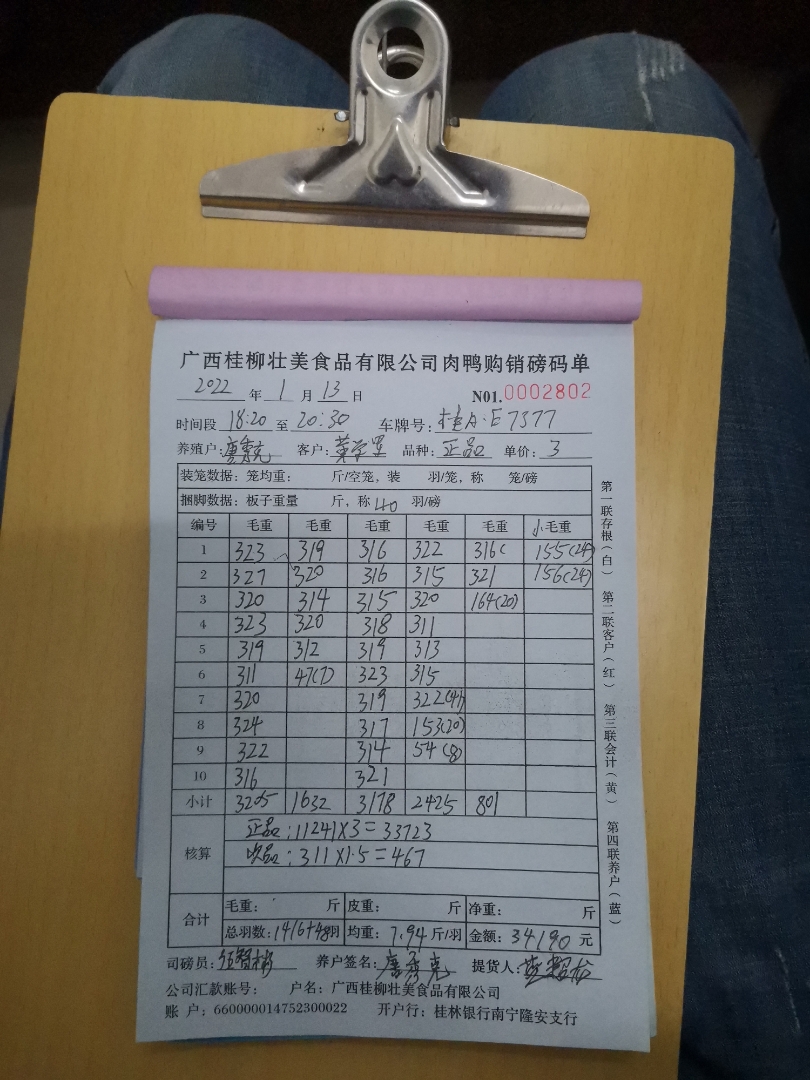 广西桂柳壮美食品有限公司肉鸭购销磅码单
2022 年 1 月 13 日 N01.0002802
时间段 18:20 至 20:30 车牌号: 桂A·E7377
养殖户: 唐秀克 客户: 品种: 正品 单价: 3
装笼数据: 笼均重: 斤/空笼, 装 羽/笼, 称 笼/磅
捆脚数据: 板子重量 斤, 称 40 羽/磅
编号 毛重 毛重 毛重 毛重 毛重 小毛重
1 323 319 316 322 316 155(24)
2 327 320 316 315 321 156(24)
3 320 314 315 320 164(20)
4 323 320 318 311
5 319 312 319 313
6 311 47(7) 323 315
7 320 319 322(41)
8 324 317 153(20)
9 322 314 54(8)
10 316 321
小计 3205 1632 3178 2425 801
核算
正品: 11241X3=33723
次品: 311X1.5=467
合计
毛重: 斤 皮重: 斤 净重: 斤
总羽数: 1416+48羽 均重: 7.94 斤/羽 金额: 34190 元
司磅员: 养户签名: 唐秀克 提货人:
公司汇款账号: 户名: 广西桂柳壮美食品有限公司
账 户: 660000014752300022 开户行: 桂林银行南宁隆安支行
第一联存根(白) 第二联客户(红) 第三联会计(黄) 第四联养户(蓝)